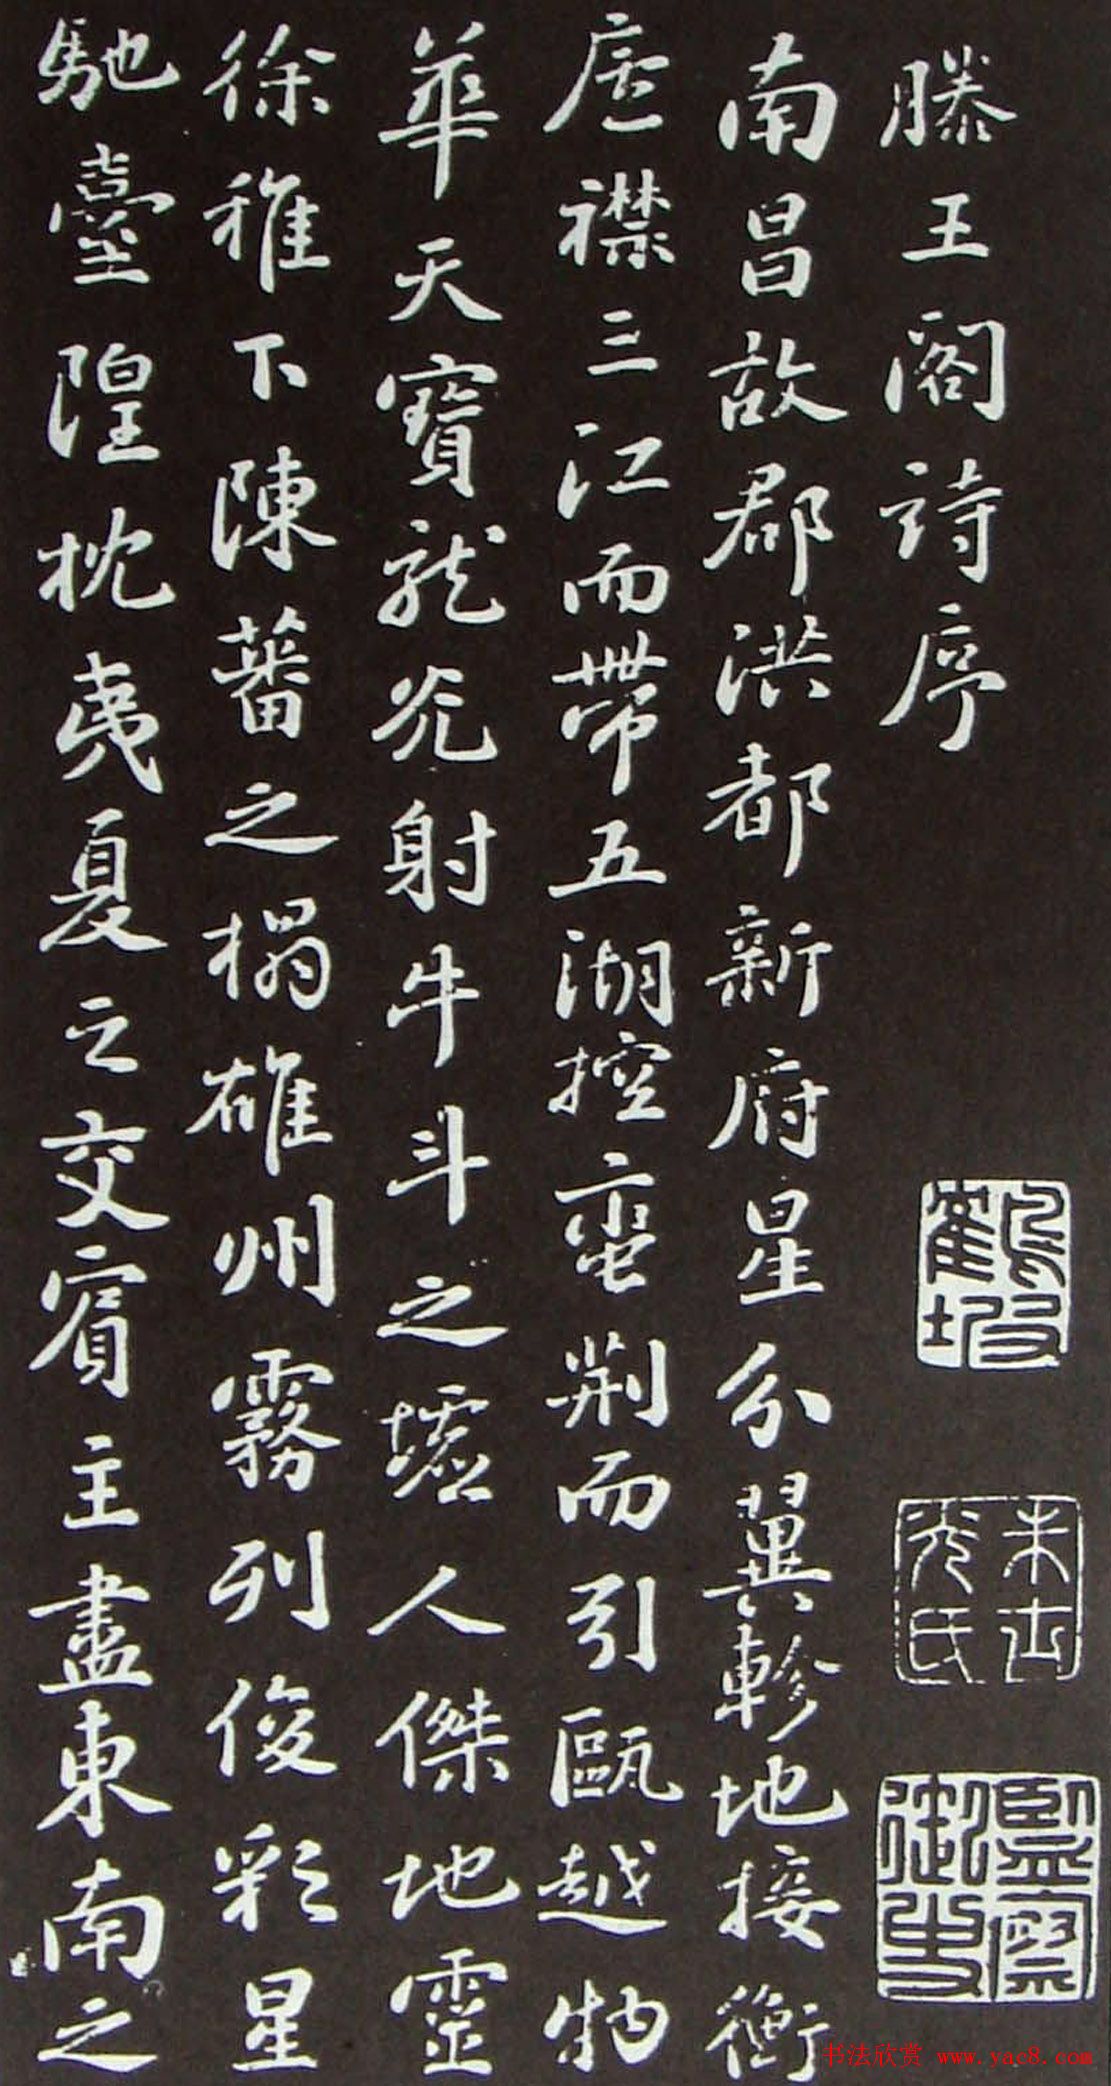 滕王閣詩序
南昌故郡洪都新府星分翼軫地接衡
廬襟三江而帶五湖控蠻荆而引甌越物
華天寶龍光射牛斗之墟人傑地靈
徐稚下陳蕃之榻雄州霧列俊彩星
馳臺隍枕夷夏之交賓主盡東南之
鶴坡
監察御史
书法欣赏 www.yac8.com